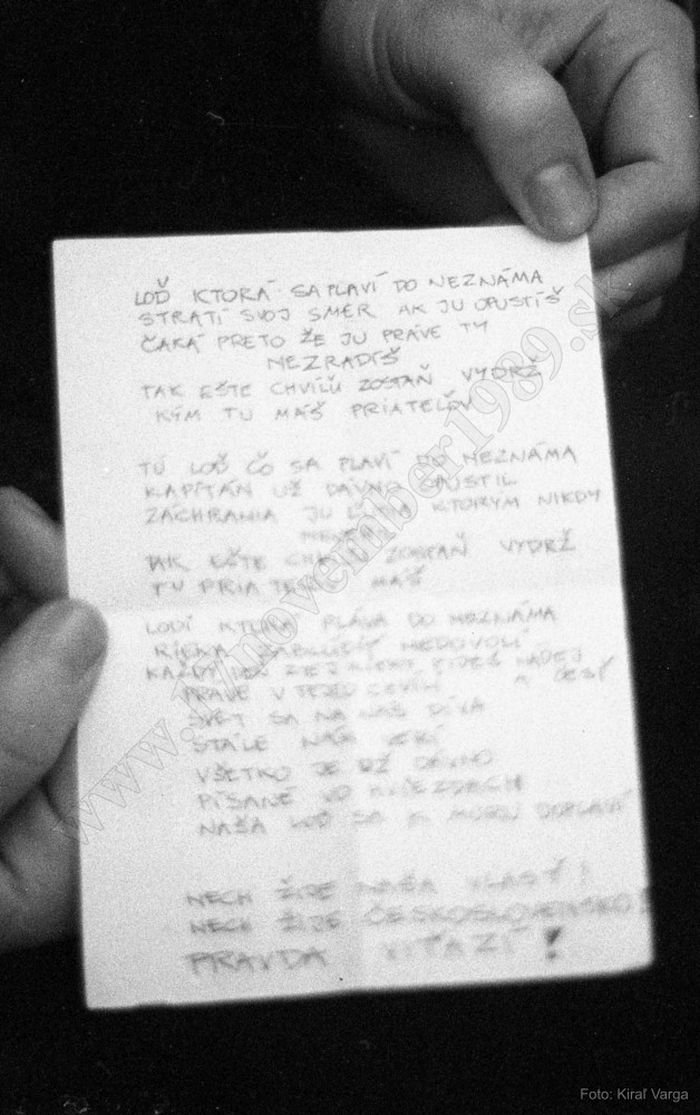 LOĎ KTORÁ SA PLAVÍ DO NEZNÁMA
STRATÍ SVOJ SMER AK JU OPUSTÍŠ
ČAKÁ PRETO ŽE JU PRÁVE TY
NEZRADÍŠ
TAK EŠTE CHVÍĽU ZOSTAŇ VYDRŽ
KÝM TU MÁŠ PRIATEĽOV
TÚ LOĎ ČO SA PLAVÍ DO NEZNÁMA
KAPITÁN UŽ DÁVNO OPUSTIL
ZACHRÁNIA JU ĽUDIA KTORÝM NIKDY
TAK EŠTE ZOSTAŇ VYDRŽ
TU MÁŠ
LODI KTORÁ PLÁVA DO NEZNÁMA
RIEKA NEDOVOLÍ
KAŽDÝ NÁDEJ
PRÁVE V TEJTO CHVÍLI A ČESŤ
SVET SA NA NÁS DÍVA
STÁLE NÁS
VŠETKO JE UŽ DÁVNO
PÍSANÉ VO HVIEZDACH
NAŠA LOĎ SA K MORU DOPLAVÍ
NECH ŽIJE NAŠA VLASŤ!
NECH ŽIJE ČESKOSLOVENSKO!
PRAVDA VÍŤAZÍ!
www.17november1989.sk
Foto: Kiraľ Varga